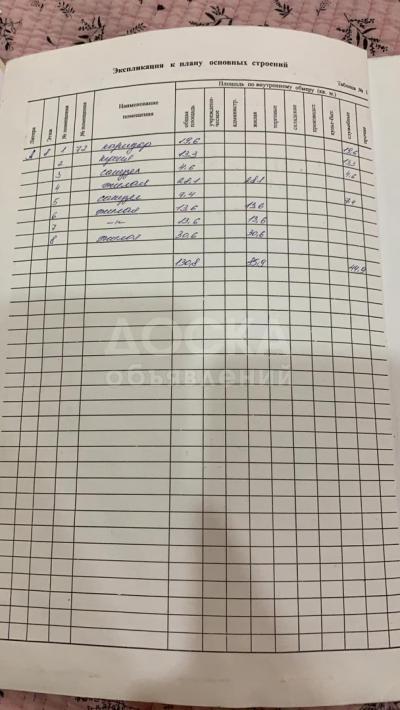 Экспликация к плану основных строений
Таблица № 1
Площадь по внутреннему обмеру (кв. м.)
Литера Этаж № помещения № помещения Наименование помещения общая площадь администр. жилая торговые складские производст. культ-быт. служебные прочие
2 2 1 72 коридор 19,6 19,6
2 кухня 13,3 13,3
3 санузел 4.6 4.6
4 жилая 28.1 28.1
5 санузел 7.4 7.4
6 жилая 13,6 13,6
7 -"- 13,6 13,6
8 жилая 30,6 30,6
130,8 85,9 44,9
ДОСКА
объявлений